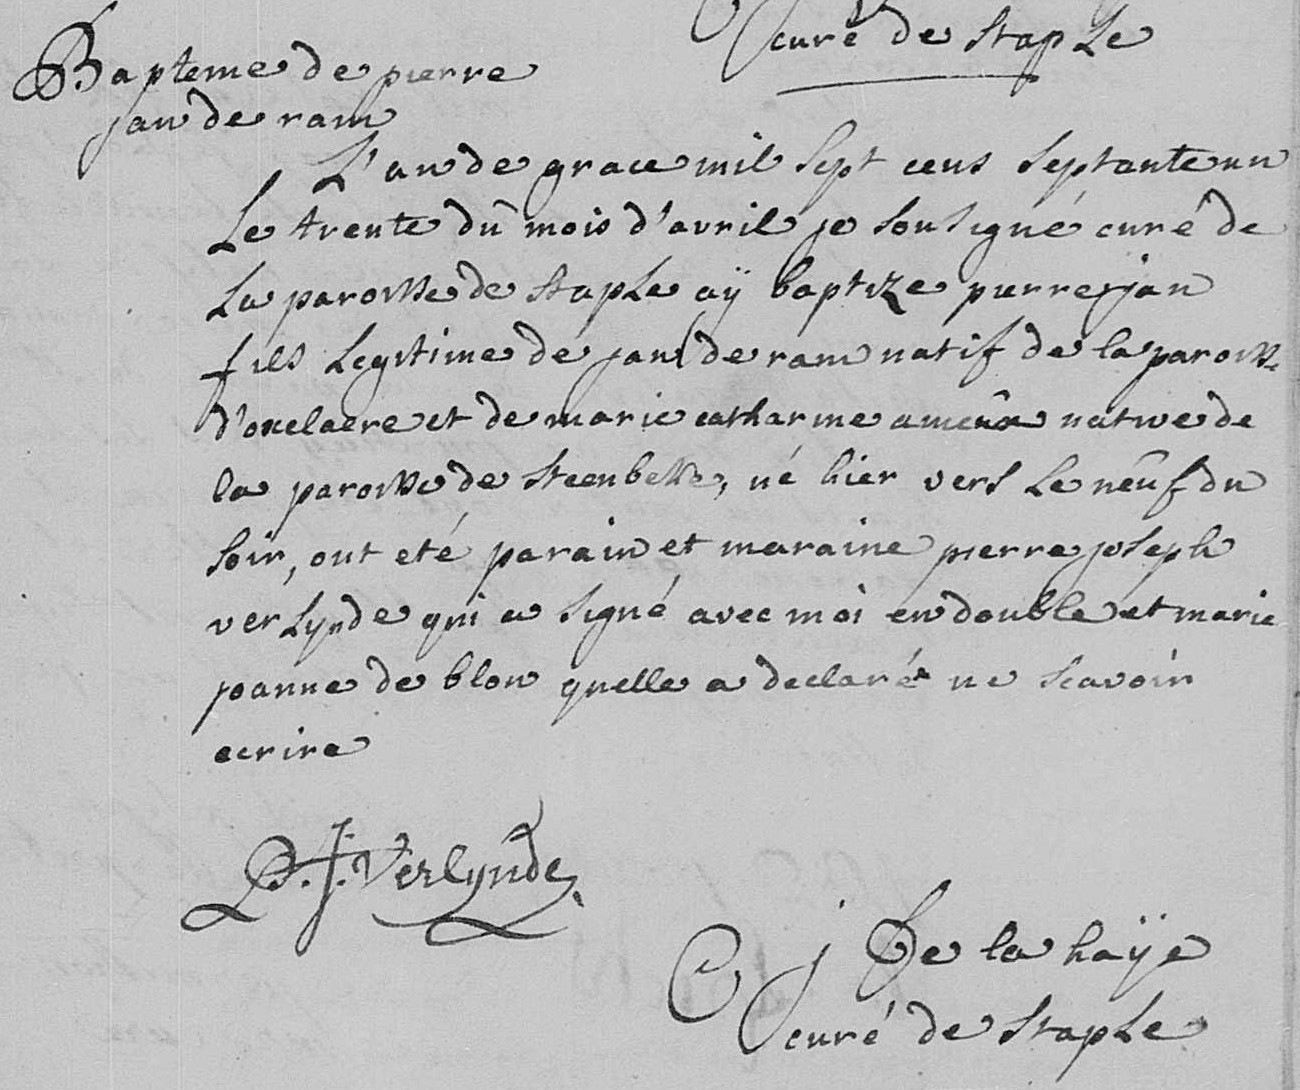 curé de stapLe
Bapteme de pierre
jan de ram
L'an de grace mil sept cens septante un
Le trente du mois d'avril je sousigné curé de
La paroisse de stapLe aÿ baptize pierre jan
fils Legitime de jan de ram natif de la paroisse
d'oxelaere et de marie catharine ameux native de
la paroisse de steenbeke, né hier vers Le neuf du
soir, ont eté parain et maraine pierre joseph
verLynde qui a signé avec moi en double et marie
joanne de blon quelle a declaré ne scavoir
ecrire
P. J. Verlynde
C j De la haÿe
curé de stapLe